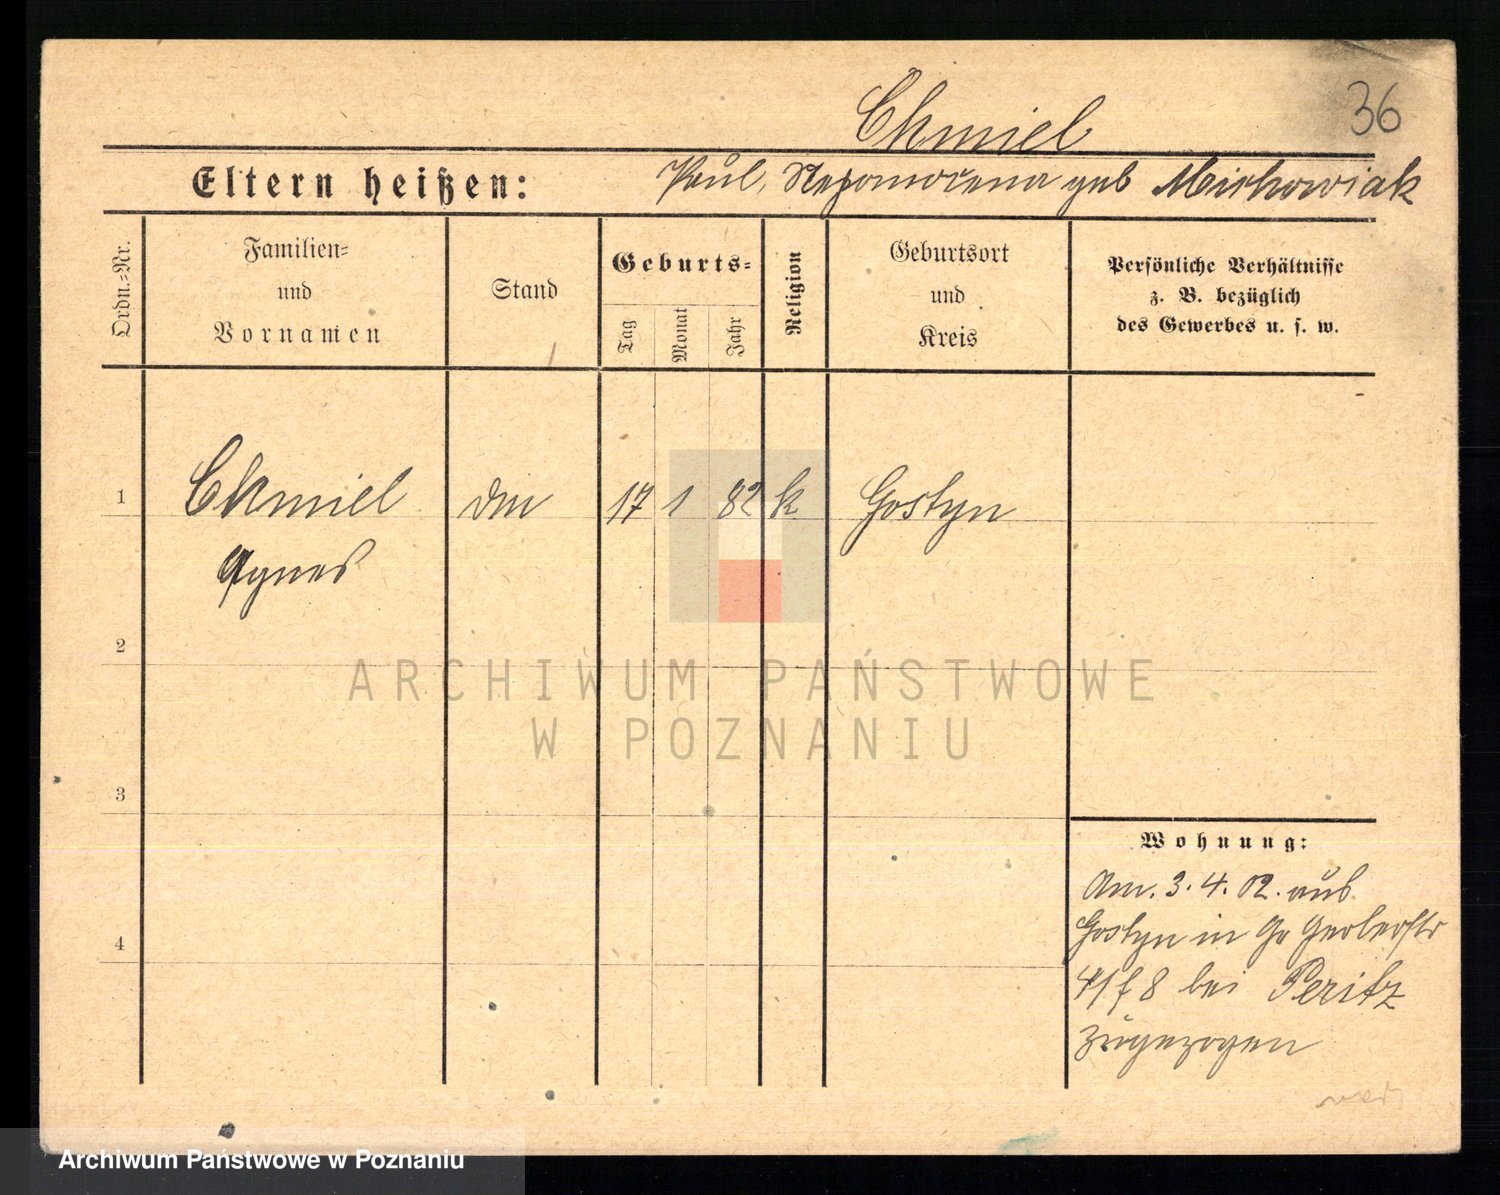 36
Chmiel
Eltern heißen: Paul, Nepomocena geb Miskowiak
Ordn.-Nr.
Familien-
und
Vornamen
Stand
Geburts-
Tag
Monat
Jahr
Religion
Geburtsort
und
Kreis
Persönliche Verhältnisse
z. B. bezüglich
des Gewerbes u. s. w.
1 Chmiel 17 1 82 k Gostyn
Agnes
2
ARCHIWUM PAŃSTWOWE
W POZNANIU
3
Wohnung:
Am. 3. 4. 02. aus
Gostyn in Gr Gerberstr
4
41 f 8 bei Peritz
zugezogen
Archiwum Państwowe w Poznaniu